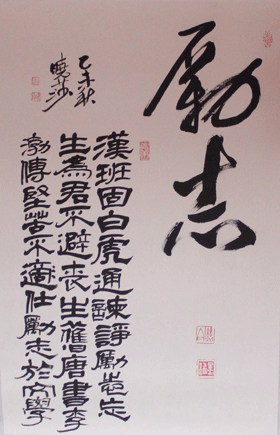 励志
漢班固白虎通諫諍勵志忘
生為君不避喪生舊唐書李
渤傳堅苦不適仕勵志於文學
乙未秋